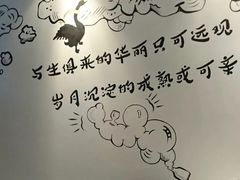 与生俱来的华丽只可远观
岁月沉淀的成熟或可亲